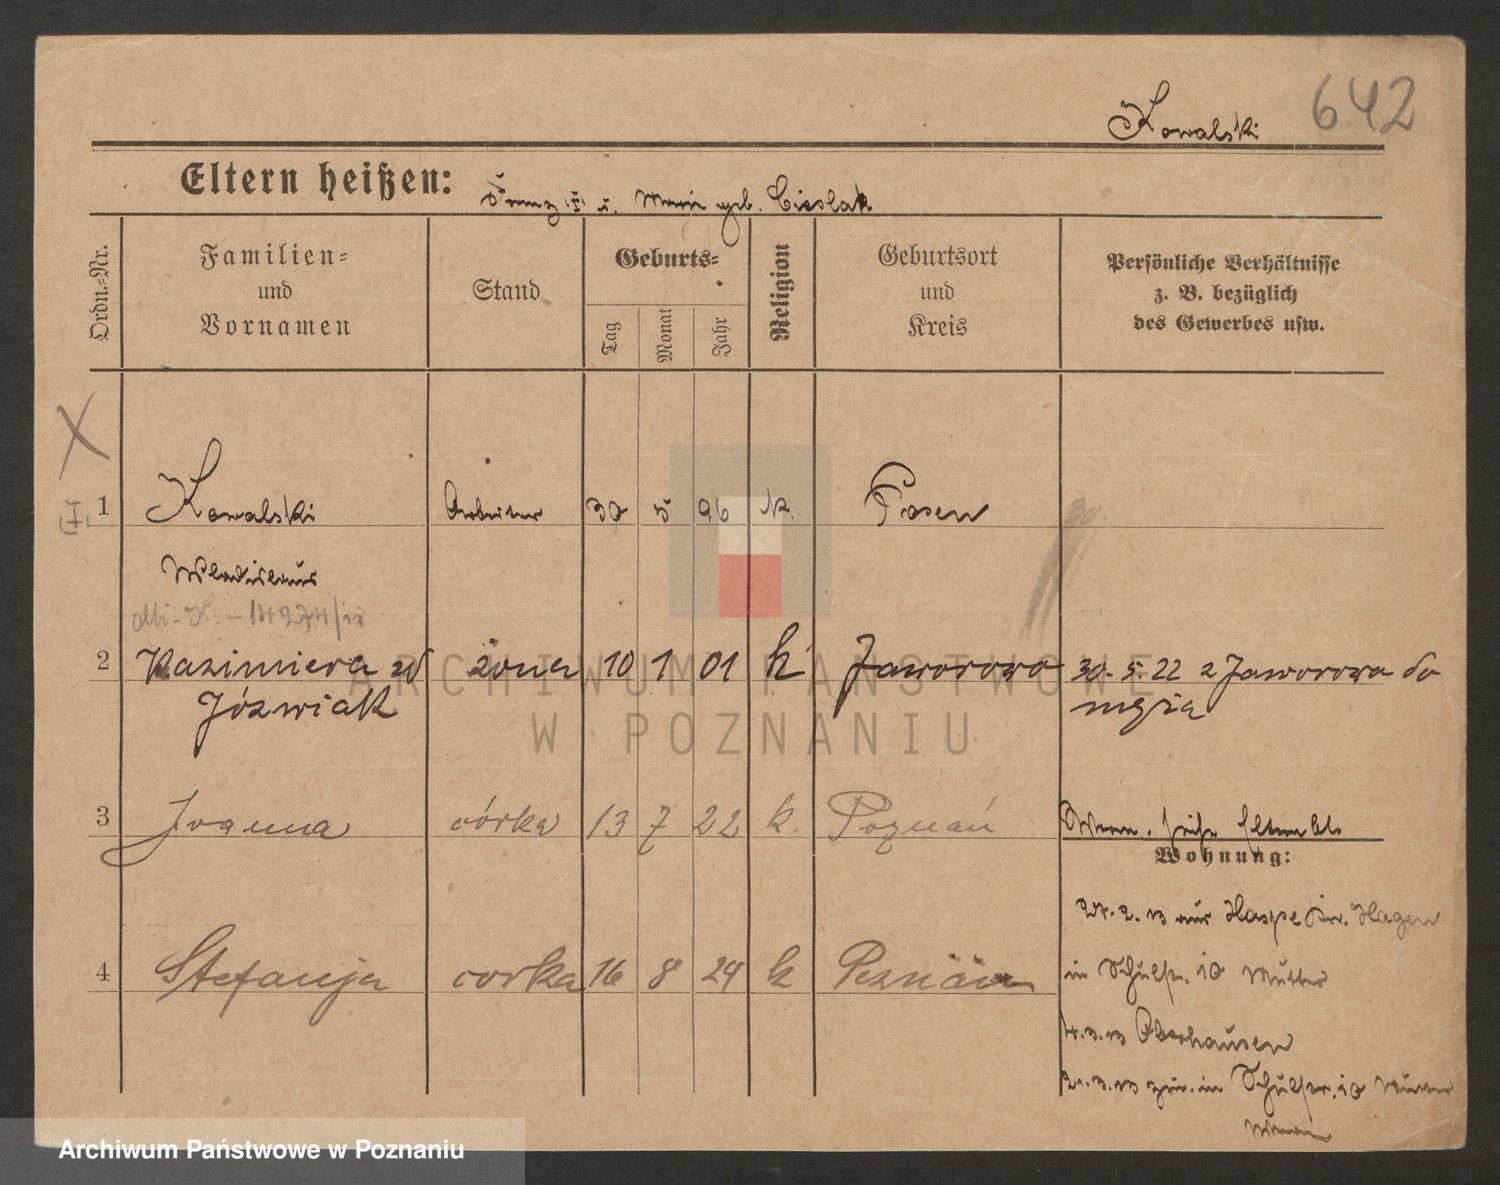 Kowalski 642
Eltern heißen: Franz u. Marie geb. Cieslak
Ordn.-Nr.
Familien-
und
Vornamen
Stand
Geburts-
Tag
Monat
Jahr
Religion
Geburtsort
und
Kreis
Persönliche Verhältnisse
z. B. bezüglich
des Gewerbes usw.
1 Kowalski Arbeiter 30 5 96 k. Posen
Wladislaus
14274/
2 Kazimiera żona 10 1 01 k Jaworowo 30.5.22 z Jaworowa do
Józwiak męża
3 Joanna córka 13 7 22 k. Poznań
Wohnung:
aus Haspe Kr. Hagen
4 Stefanja corka 16 8 24 k Poznań
in Schulstr. 10 Mutter
Oberhausen
zur. in Schulstr. 10 Mutter
ARCHIWUM PAŃSTWOWE
W POZNANIU
Archiwum Państwowe w Poznaniu